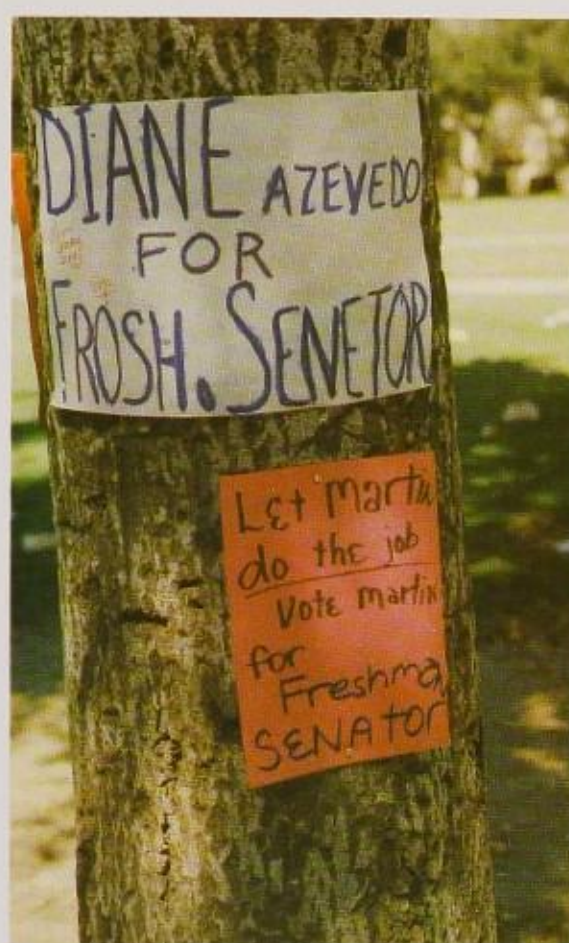 DIANE AZEVEDO
FOR
FROSH. SENETOR
Let martin
do the job
Vote martin
for
Freshma
SENAtor